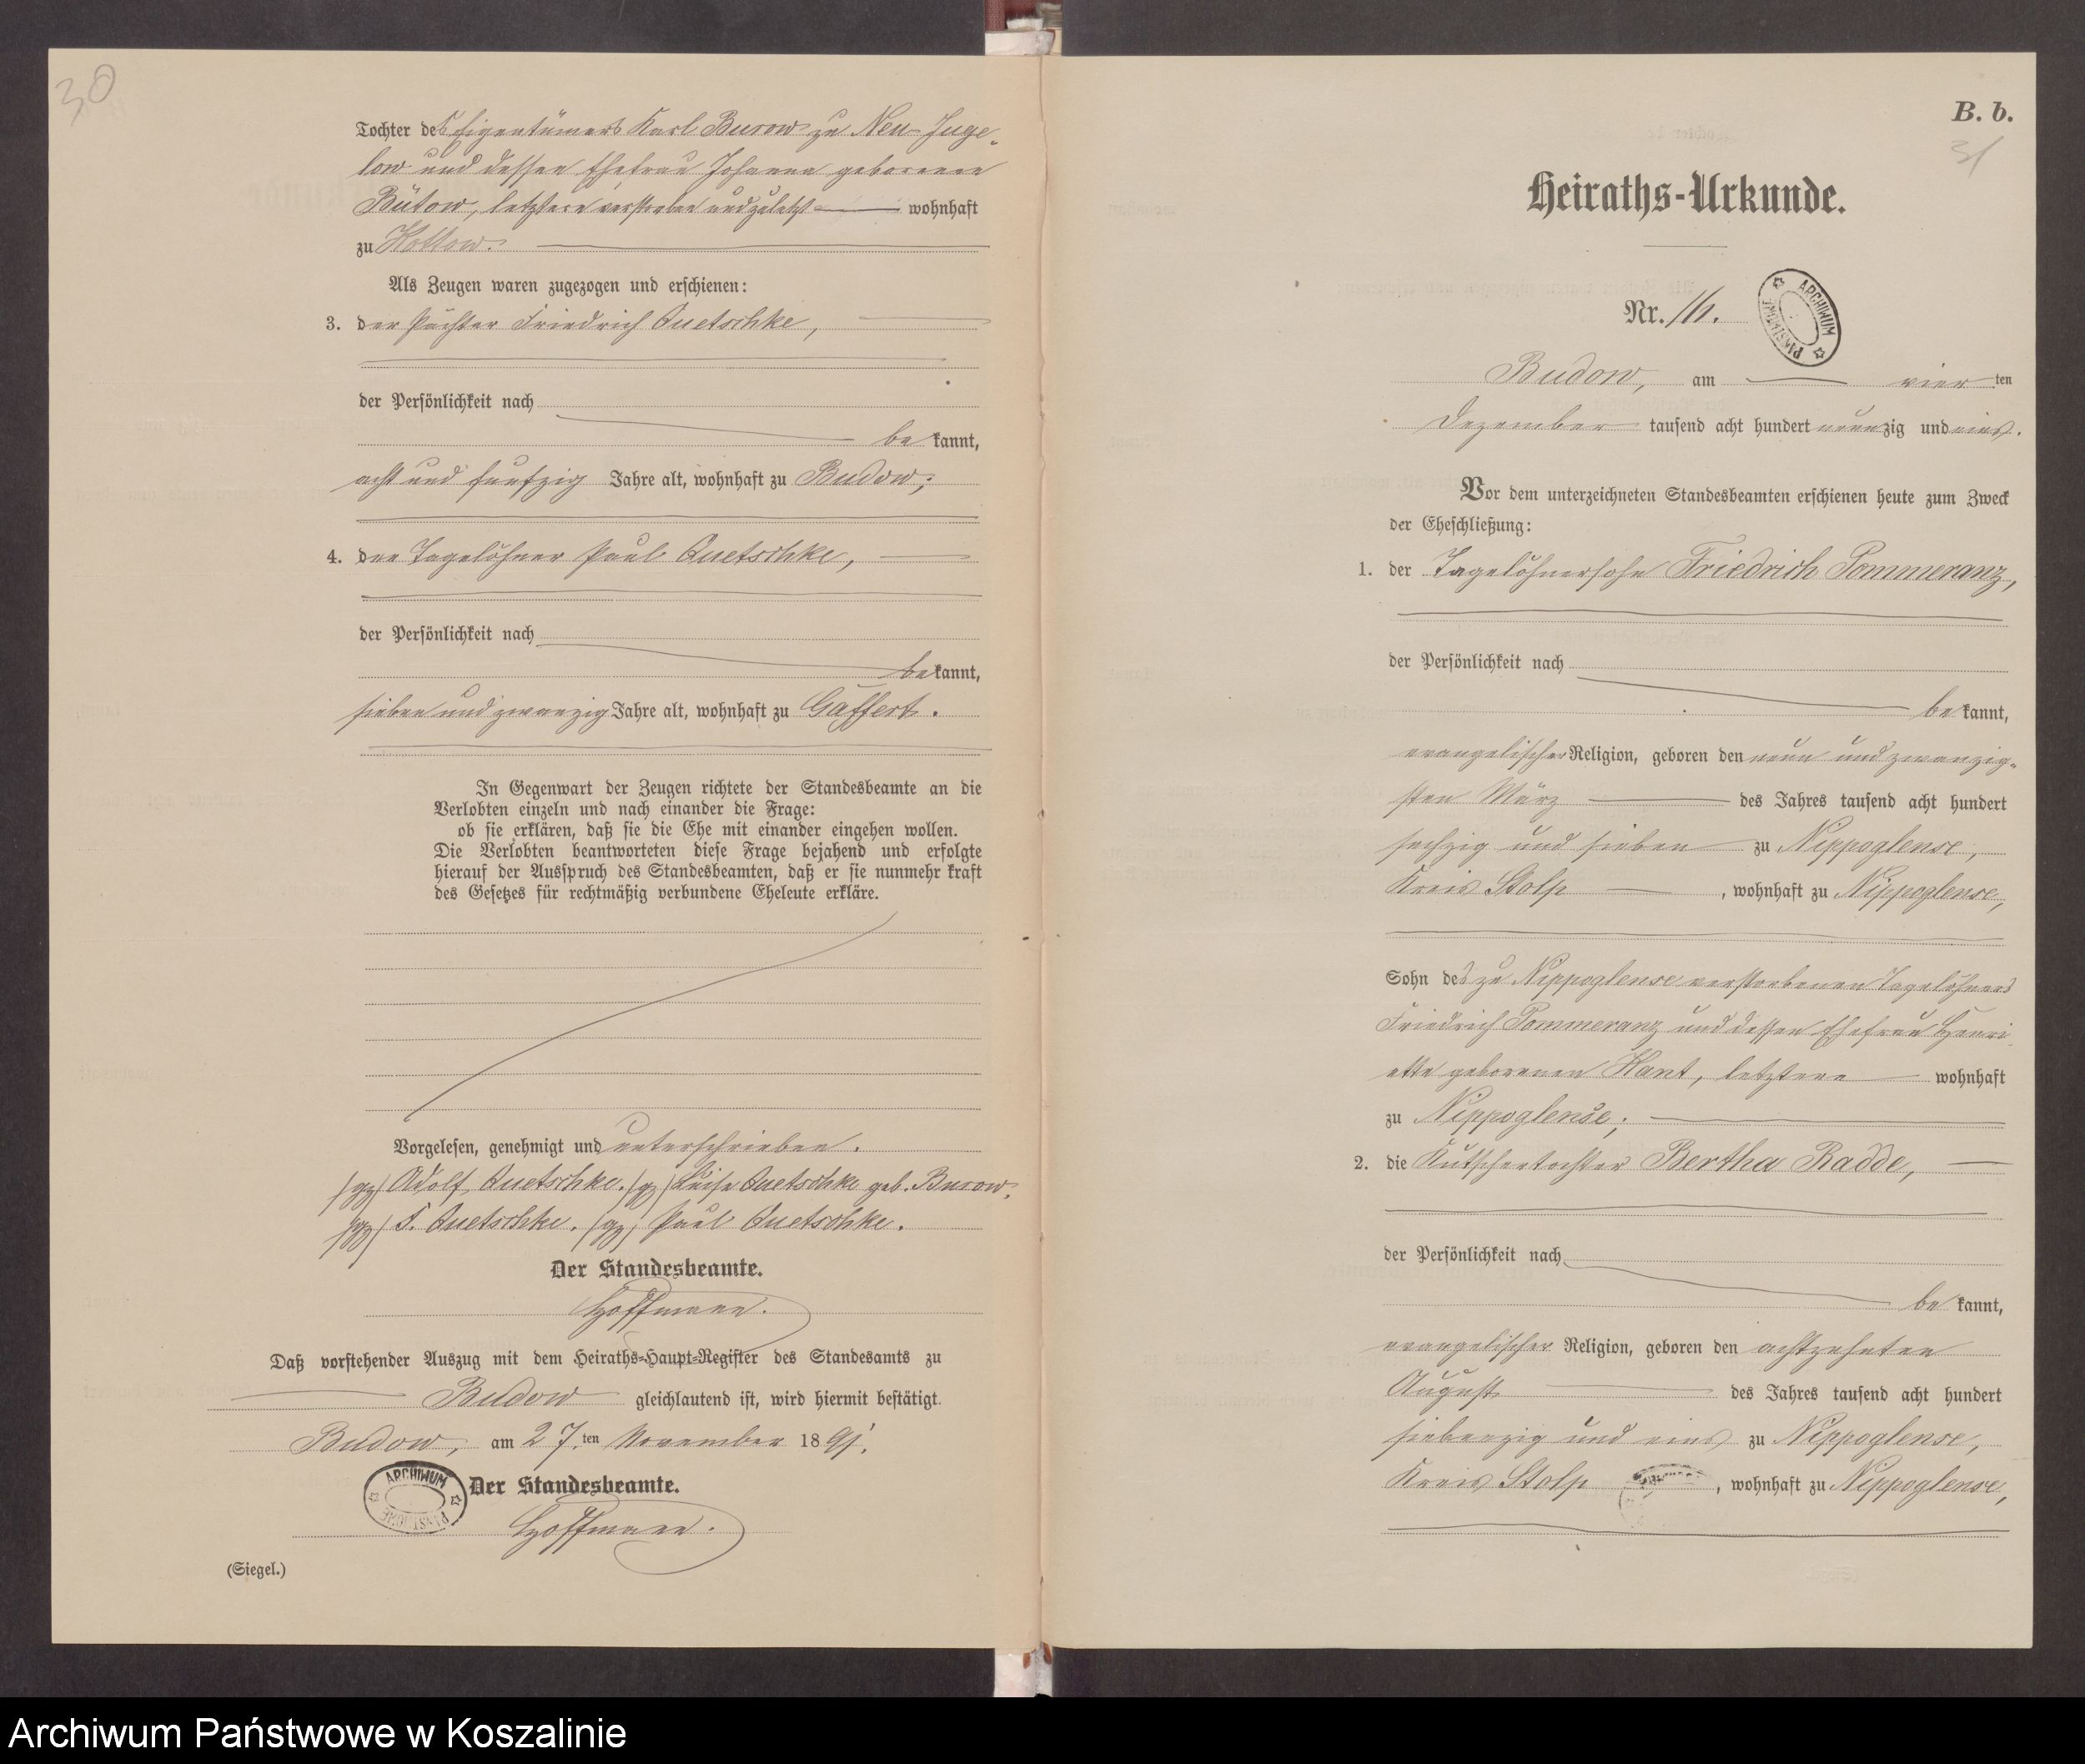 30
Tochter des Eigentümers Karl Burow zu Neu-Juge-
low und dessen Ehefrau Johanna geborenen
Bütow, letztere verstorben und zuletzt wohnhaft
zu Kottow.
Als Zeugen waren zugezogen und erschienen:
3. der Pächter Friedrich Quetschke,
der Persönlichkeit nach
be kannt,
acht und funfzig Jahre alt, wohnhaft zu Budow;
4. der Tagelöhner Paul Quetschke,
der Persönlichkeit nach
be kannt,
sieben und zwanzig Jahre alt, wohnhaft zu Gaffert.
In Gegenwart der Zeugen richtete der Standesbeamte an die
Verlobten einzeln und nach einander die Frage:
ob sie erklären, daß sie die Ehe mit einander eingehen wollen.
Die Verlobten beantworteten diese Frage bejahend und erfolgte
hierauf der Ausspruch des Standesbeamten, daß er sie nunmehr kraft
des Gesetzes für rechtmäßig verbundene Eheleute erkläre.
Vorgelesen, genehmigt und unterschrieben.
(gz) Adolf Quetschke. (gz) Luise Quetschke geb. Burow.
(gz) F. Quetschke. (gz) Paul Quetschke.
Der Standesbeamte.
Hoffmann.
Daß vorstehender Auszug mit dem Heiraths-Haupt-Register des Standesamts zu
Budow gleichlautend ist, wird hiermit bestätigt.
Budow, am 27.ten November 1891.
ARCHIWUM PAŃSTWOWE
Der Standesbeamte.
Hoffmann.
(Siegel.)
B. b.
31
Heiraths-Urkunde.
Nr. 16.
ARCHIWUM PAŃSTWOWE
Budow, am vier ten
Dezember tausend acht hundert neunzig und eins.
Vor dem unterzeichneten Standesbeamten erschienen heute zum Zweck
der Eheschließung:
1. der Tagelöhnersohn Friedrich Pommeranz,
der Persönlichkeit nach
be kannt,
evangelischer Religion, geboren den neun und zwanzig-
sten März des Jahres tausend acht hundert
sechzig und sieben zu Nippoglense,
Kreis Stolp, wohnhaft zu Nippoglense,
Sohn des zu Nippoglense verstorbenen Tagelöhners
Friedrich Pommeranz und dessen Ehefrau Henri-
ette geborenen Kant, letztere wohnhaft
zu Nippoglense;
2. die Kutschertochter Bertha Radde,
der Persönlichkeit nach
be kannt,
evangelischer Religion, geboren den achtzehnten
August des Jahres tausend acht hundert
siebenzig und eins zu Nippoglense,
Kreis Stolp, wohnhaft zu Nippoglense,
Archiwum Państwowe w Koszalinie